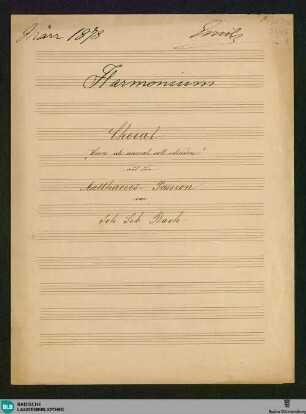 März 1878
Harmonium
Choral
"Wenn ich einmal soll scheiden"
aus der
Matthaeus-Passion
von
Joh. Seb. Bach
BLB
BADISCHE
LANDESBIBLIOTHEK
Baden-Württemberg